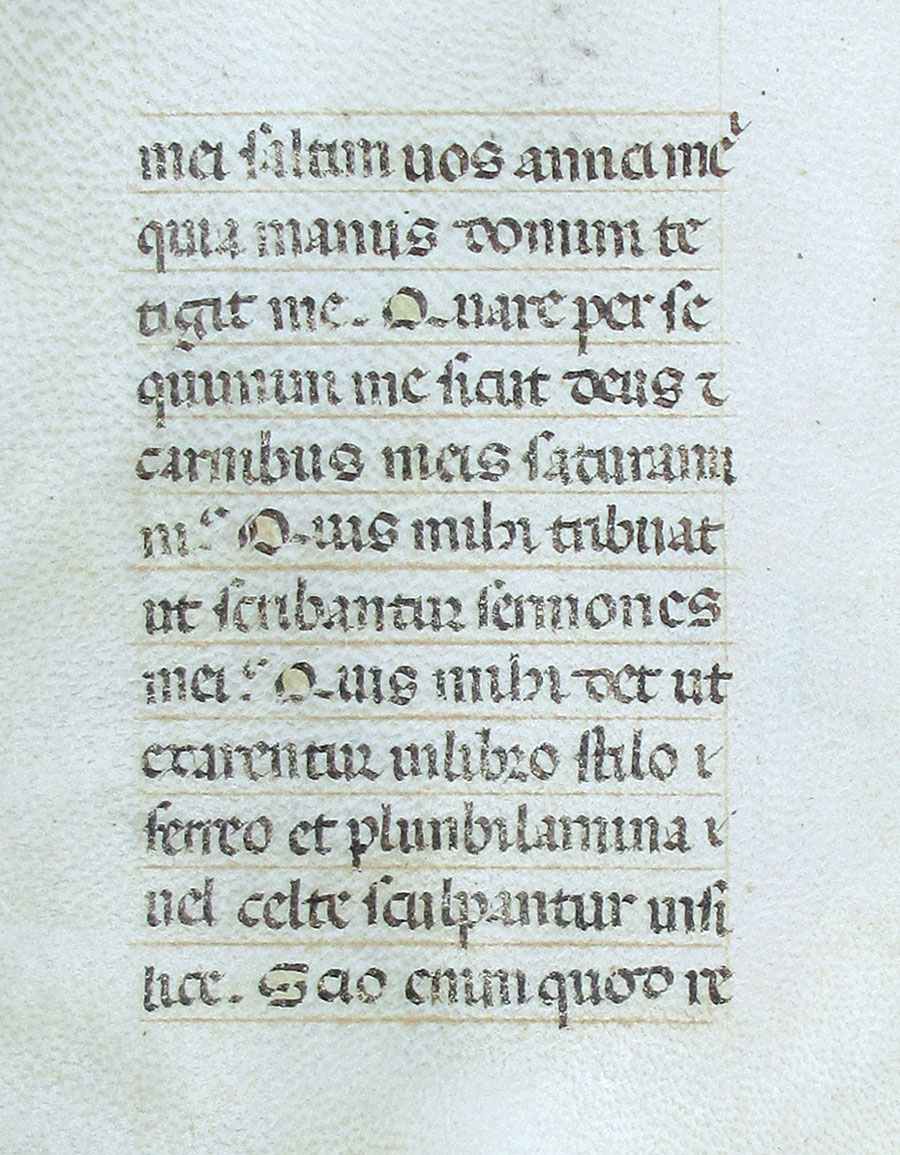 mei saltim uos amici mei
quia manus domini te
tigit me. Quare perse
quimini me sicut deus ⁊
carnibus meis saturami
ni. Quis mihi tribuat
ut scribantur sermones
mei. Quis mihi det ut
exarentur inlibro stilo
ferreo et plumbilamina
uel celte sculpantur insi
lice. Scio enim quod re